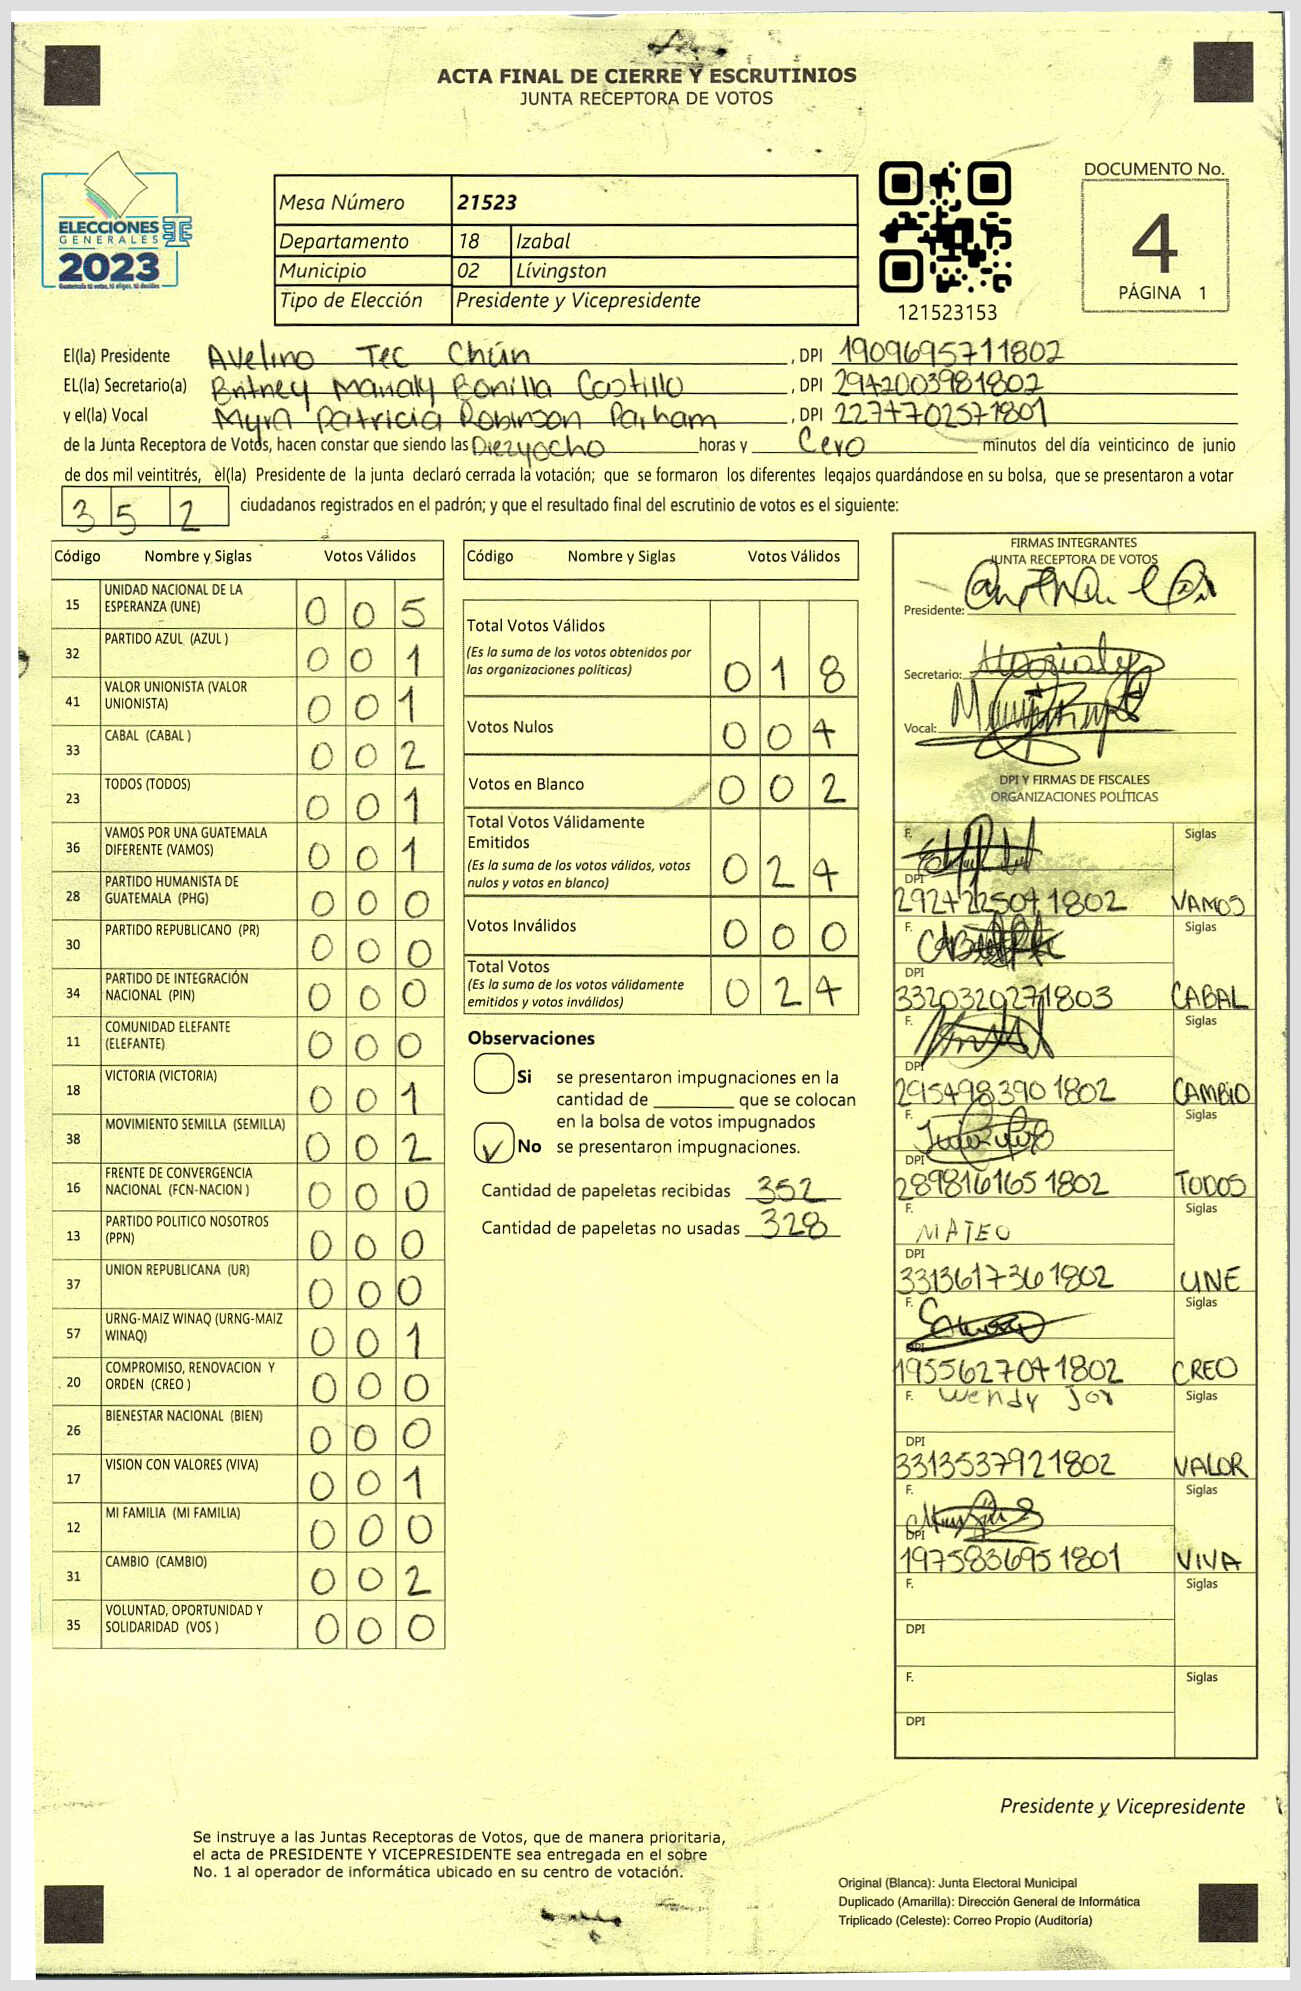 ACTA FINAL DE CIERRE Y ESCRUTINIOS
JUNTA RECEPTORA DE VOTOS
ELECCIONES
GENERALES
2023
Guatemala tú votas, tú eliges, tú decides
TSE
Mesa Número 21523
Departamento 18 Izabal
Municipio 02 Lívingston
Tipo de Elección Presidente y Vicepresidente
121523153
DOCUMENTO No.
4
PÁGINA 1
El(la) Presidente Avelino Tec Chún, DPI 1909695711802
EL(la) Secretario(a) Britney Manaly Bonilla Castillo, DPI 2942003981802
y el(la) Vocal Myra Patricia Robinson Parham, DPI 2274702571801
de la Junta Receptora de Votos, hacen constar que siendo las Diezyocho horas y Cero minutos del día veinticinco de junio
de dos mil veintitrés, el(la) Presidente de la junta declaró cerrada la votación; que se formaron los diferentes legajos guardándose en su bolsa, que se presentaron a votar
352 ciudadanos registrados en el padrón; y que el resultado final del escrutinio de votos es el siguiente:
Código Nombre y Siglas Votos Válidos
15 UNIDAD NACIONAL DE LA ESPERANZA (UNE) 0 0 5
32 PARTIDO AZUL (AZUL ) 0 0 1
41 VALOR UNIONISTA (VALOR UNIONISTA) 0 0 1
33 CABAL (CABAL ) 0 0 2
23 TODOS (TODOS) 0 0 1
36 VAMOS POR UNA GUATEMALA DIFERENTE (VAMOS) 0 0 1
28 PARTIDO HUMANISTA DE GUATEMALA (PHG) 0 0 0
30 PARTIDO REPUBLICANO (PR) 0 0 0
34 PARTIDO DE INTEGRACIÓN NACIONAL (PIN) 0 0 0
11 COMUNIDAD ELEFANTE (ELEFANTE) 0 0 0
18 VICTORIA (VICTORIA) 0 0 1
38 MOVIMIENTO SEMILLA (SEMILLA) 0 0 2
16 FRENTE DE CONVERGENCIA NACIONAL (FCN-NACION ) 0 0 0
13 PARTIDO POLITICO NOSOTROS (PPN) 0 0 0
37 UNION REPUBLICANA (UR) 0 0 0
57 URNG-MAIZ WINAQ (URNG-MAIZ WINAQ) 0 0 1
20 COMPROMISO, RENOVACION Y ORDEN (CREO ) 0 0 0
26 BIENESTAR NACIONAL (BIEN) 0 0 0
17 VISION CON VALORES (VIVA) 0 0 1
12 MI FAMILIA (MI FAMILIA) 0 0 0
31 CAMBIO (CAMBIO) 0 0 2
35 VOLUNTAD, OPORTUNIDAD Y SOLIDARIDAD (VOS ) 0 0 0
Código Nombre y Siglas Votos Válidos
Total Votos Válidos 0 1 8
(Es la suma de los votos obtenidos por
las organizaciones políticas)
Votos Nulos 0 0 4
Votos en Blanco 0 0 2
Total Votos Válidamente
Emitidos 0 2 4
(Es la suma de los votos válidos, votos
nulos y votos en blanco)
Votos Inválidos 0 0 0
Total Votos 0 2 4
(Es la suma de los votos válidamente
emitidos y votos inválidos)
Observaciones
Si se presentaron impugnaciones en la
cantidad de ________ que se colocan
en la bolsa de votos impugnados
No se presentaron impugnaciones.
Cantidad de papeletas recibidas 352
Cantidad de papeletas no usadas 328
FIRMAS INTEGRANTES
JUNTA RECEPTORA DE VOTOS
Presidente:
Secretario:
Vocal:
DPI Y FIRMAS DE FISCALES
ORGANIZACIONES POLÍTICAS
F. Siglas
DPI
2924225041802 VAMOS
F. Siglas
DPI
3320320271803 CABAL
F. Siglas
DPI
2954983901802 CAMBIO
F. Siglas
DPI
2898161651802 TODOS
F. MATEO Siglas
DPI
3313617361802 UNE
F. Siglas
DPI
1955627041802 CREO
F. Wendy Jor Siglas
DPI
3313537921802 VALOR
F. Siglas
DPI
1975836951801 VIVA
F. Siglas
DPI
F. Siglas
DPI
Presidente y Vicepresidente
Se instruye a las Juntas Receptoras de Votos, que de manera prioritaria,
el acta de PRESIDENTE Y VICEPRESIDENTE sea entregada en el sobre
No. 1 al operador de informática ubicado en su centro de votación.
Original (Blanca): Junta Electoral Municipal
Duplicado (Amarilla): Dirección General de Informática
Triplicado (Celeste): Correo Propio (Auditoría)